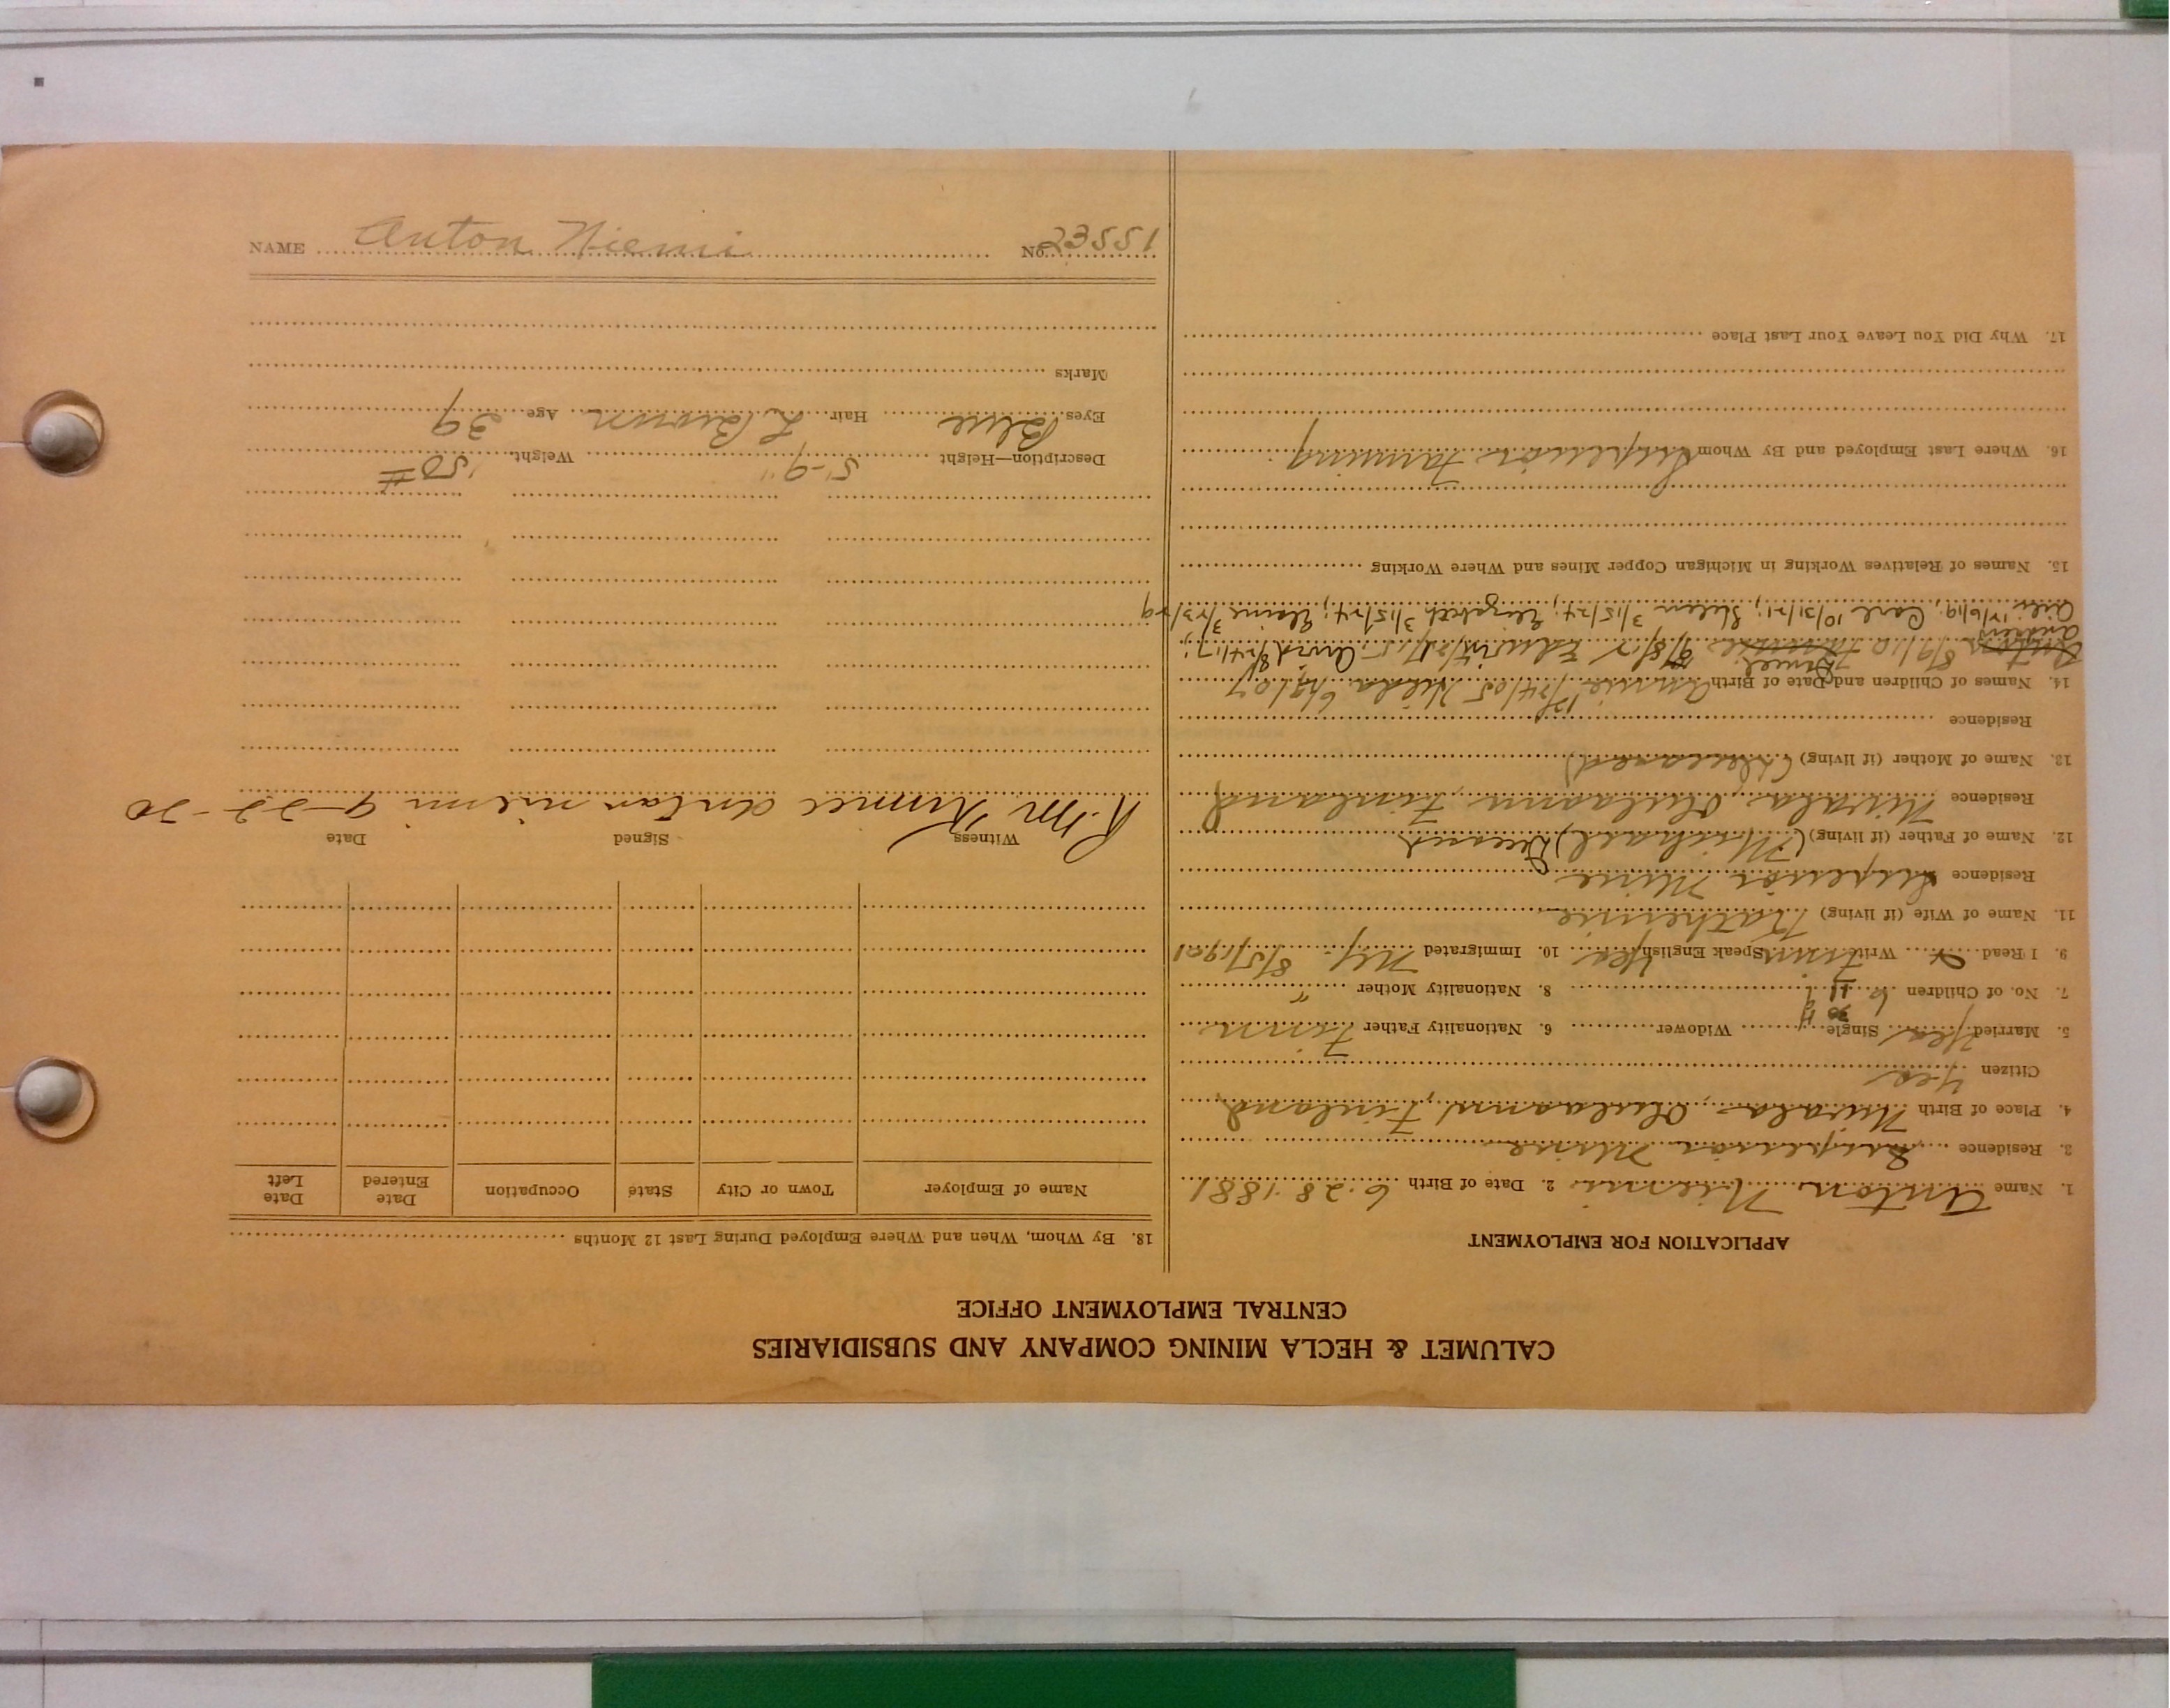 CALUMET & HECLA MINING COMPANY AND SUBSIDIARIES
CENTRAL EMPLOYMENT OFFICE
APPLICATION FOR EMPLOYMENT
1. Name Anton Niemi 2. Date of Birth 6-28-1881
3. Residence Superior Mine
4. Place of Birth Nivala, Oulu, Finland
Citizen Yes
5. Married Yes Single Widower 6. Nationality Father Finn
7. No. of Children 8. Nationality Mother "
9. I Read Write Finn Speak English Yes 10. Immigrated NY. 8/5/1901
11. Name of Wife (if living) Katherine
Residence Superior Mine
12. Name of Father (if living) (Michael) Deceased
Residence Nivala, Finland
13. Name of Mother (if living) (Deceased)
Residence
14. Names of Children and Date of Birth Annie Hilda
Anton Andrew 8/9/10 Daniel 9/8/12 Edwin Arvid 8/24/17;
12/6/19; Carl 10/31/21; Helen 3/15/24; Elizabeth 3/15/24; Elaine 3/23/29
15. Names of Relatives Working in Michigan Copper Mines and Where Working
16. Where Last Employed and By Whom Superior Farming
17. Why Did You Leave Your Last Place
18. By Whom, When and Where Employed During Last 12 Months
Name of Employer Town or City State Occupation Date Entered Date Left
Witness Signed Date
R.M. Anton niemi 9-22-20
Description—Height 5'-9" Weight 150#
Eyes Blue Hair L. Brown Age 39
Marks
NAME Anton Niemi No. 15532